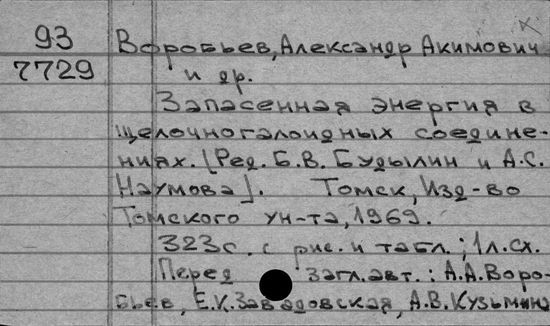 93 Воробьев, Александр Акимович
7729 и др.
Запасенная энергия в
щелочногалоидных соедине-
ниях. [Ред. Б.В. Будылин и А.С.
Наумова]. Томск, Изд-во
Томского ун-та, 1969.
323с. с рис. и табл.; 1л.сх.
Перед загл. авт.: А.А.Воро-
бьев, Е.К.Завадовская, А.В.Кузьмина